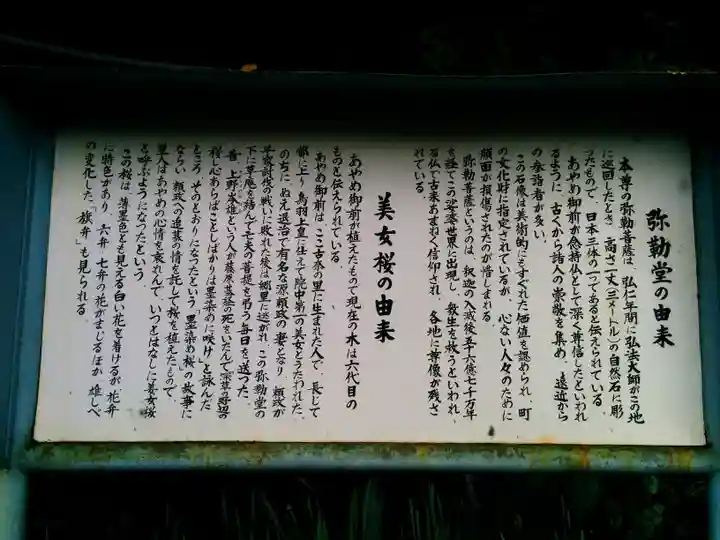 弥勒堂の由来
本尊の弥勒菩薩は、弘仁年間に弘法大師がこの地
に巡回したとき、高さ一丈(三メートル)の自然石に彫
ったもので、日本三体の一つであると伝えられている。
あやめ御前が念持仏として深く尊信したといわれ
るように、古くから諸人の崇敬を集め、遠近から
の参詣者が多い。
この石像は美術的にもすぐれた価値を認められ、町
の文化財に指定されているが、心ない人々のために
顔面が損傷されたのが惜しまれる。
弥勒菩薩というのは、釈迦の入滅後五十六億七千万年
を経てこの娑婆世界に出現し、衆生を救うといわれ、
る仏で古来あまねく信仰され、各地に尊像が残さ
れている。
美女桜の由来
あやめ御前が植えたもので現在の木は六代目の
ものと伝えられている。
あやめ御前は、ここ古奈の里に生まれた人で、長じて
都に上り、鳥羽上皇に仕えて院中第一の美女とうたわれた。
のちに、ぬえ退治で有名な源頼政の妻となり、頼政が
平家討伐の戦いに敗れた後は郷里に逃がれ、この弥勒堂の
下に草庵を結んで亡夫の菩提を弔う毎日を送った。
昔、上野岑雄という人が藤原基経の死をいたんで「深草の野辺の
桜し心あらばことしばかりは墨染めに咲け」と詠んだ
ところ、そのとおりになったという、墨染め桜の故事に
ならい、頼政への追慕の情を託して桜を植えたもので、
里人はあやめの心情を哀れんで、いつとはなしに美女桜
と呼ぶようになったという。
この桜は、薄墨色とも見える白い花を着けるが、花弁
に特色があり、六弁、七弁の花がまじるほか、雄しべ
の変化した「旗弁」も見られる。